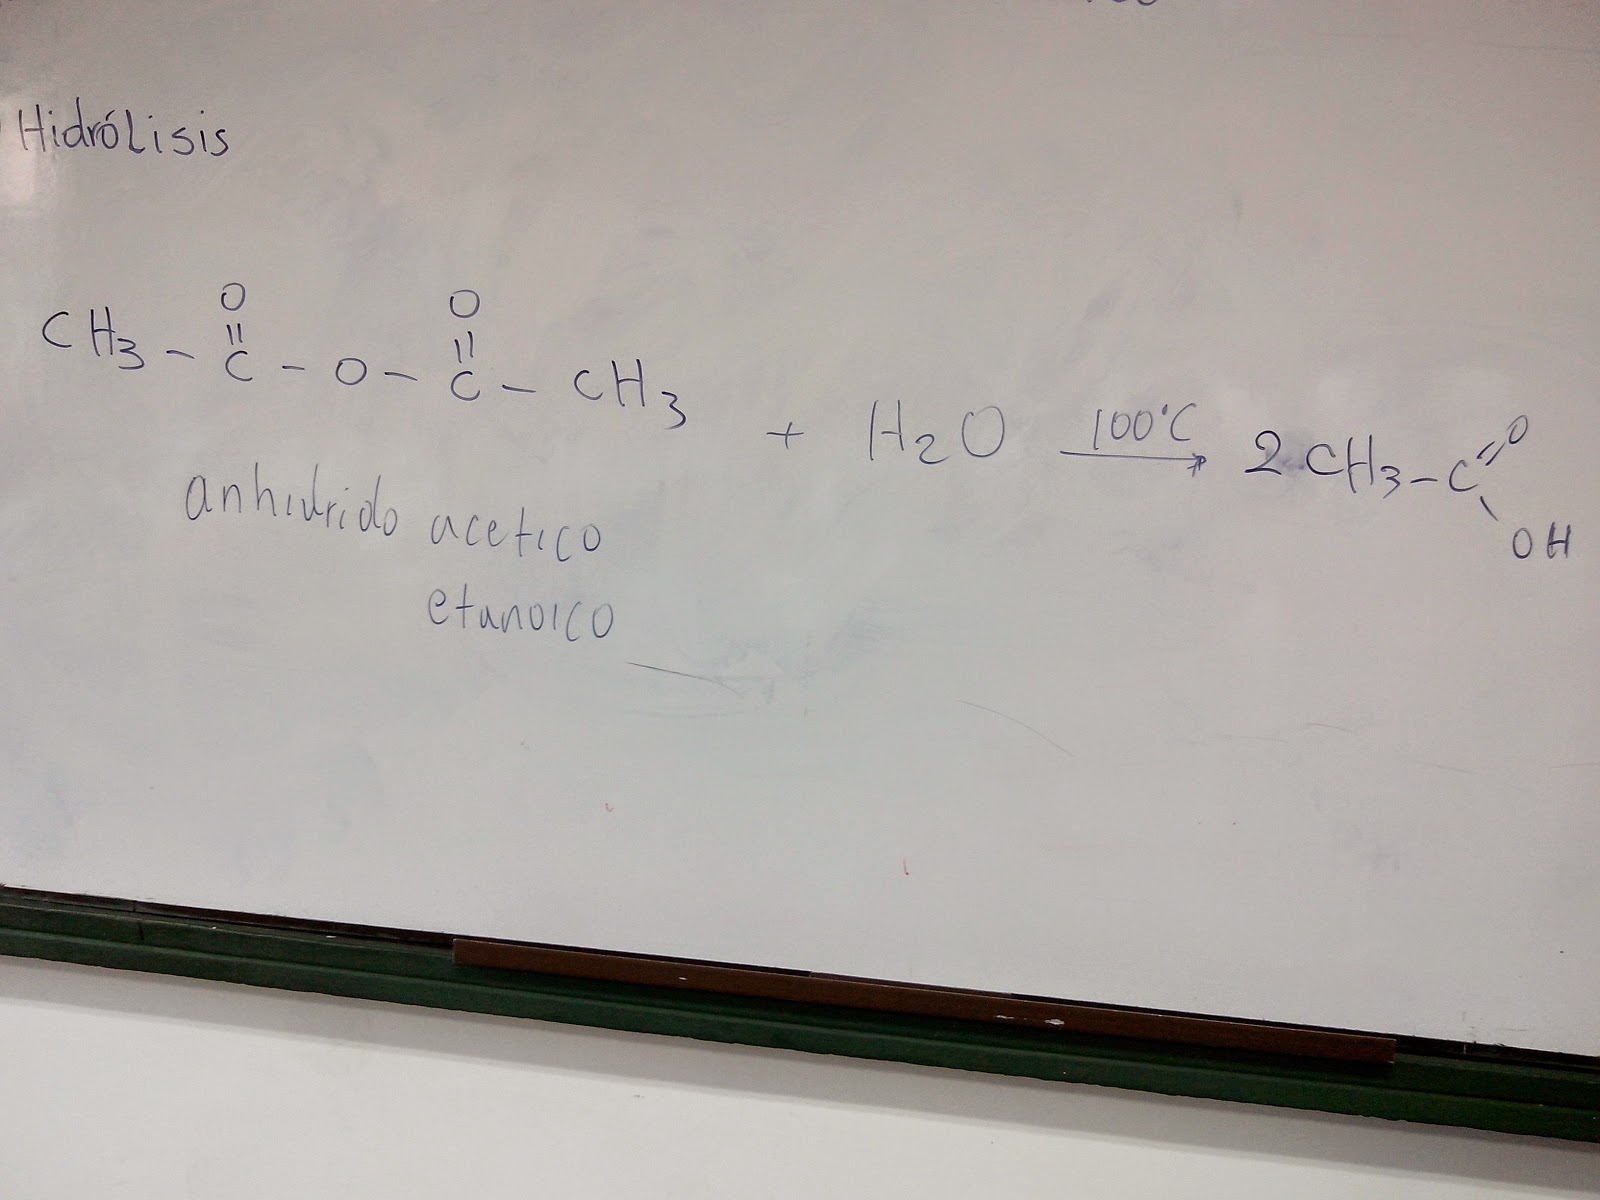 Hidrólisis
O O
CH3 - C - O - C - CH3 + H2O 100°C → 2 CH3 - C = O
OH
anhidrido acetico
etanoico